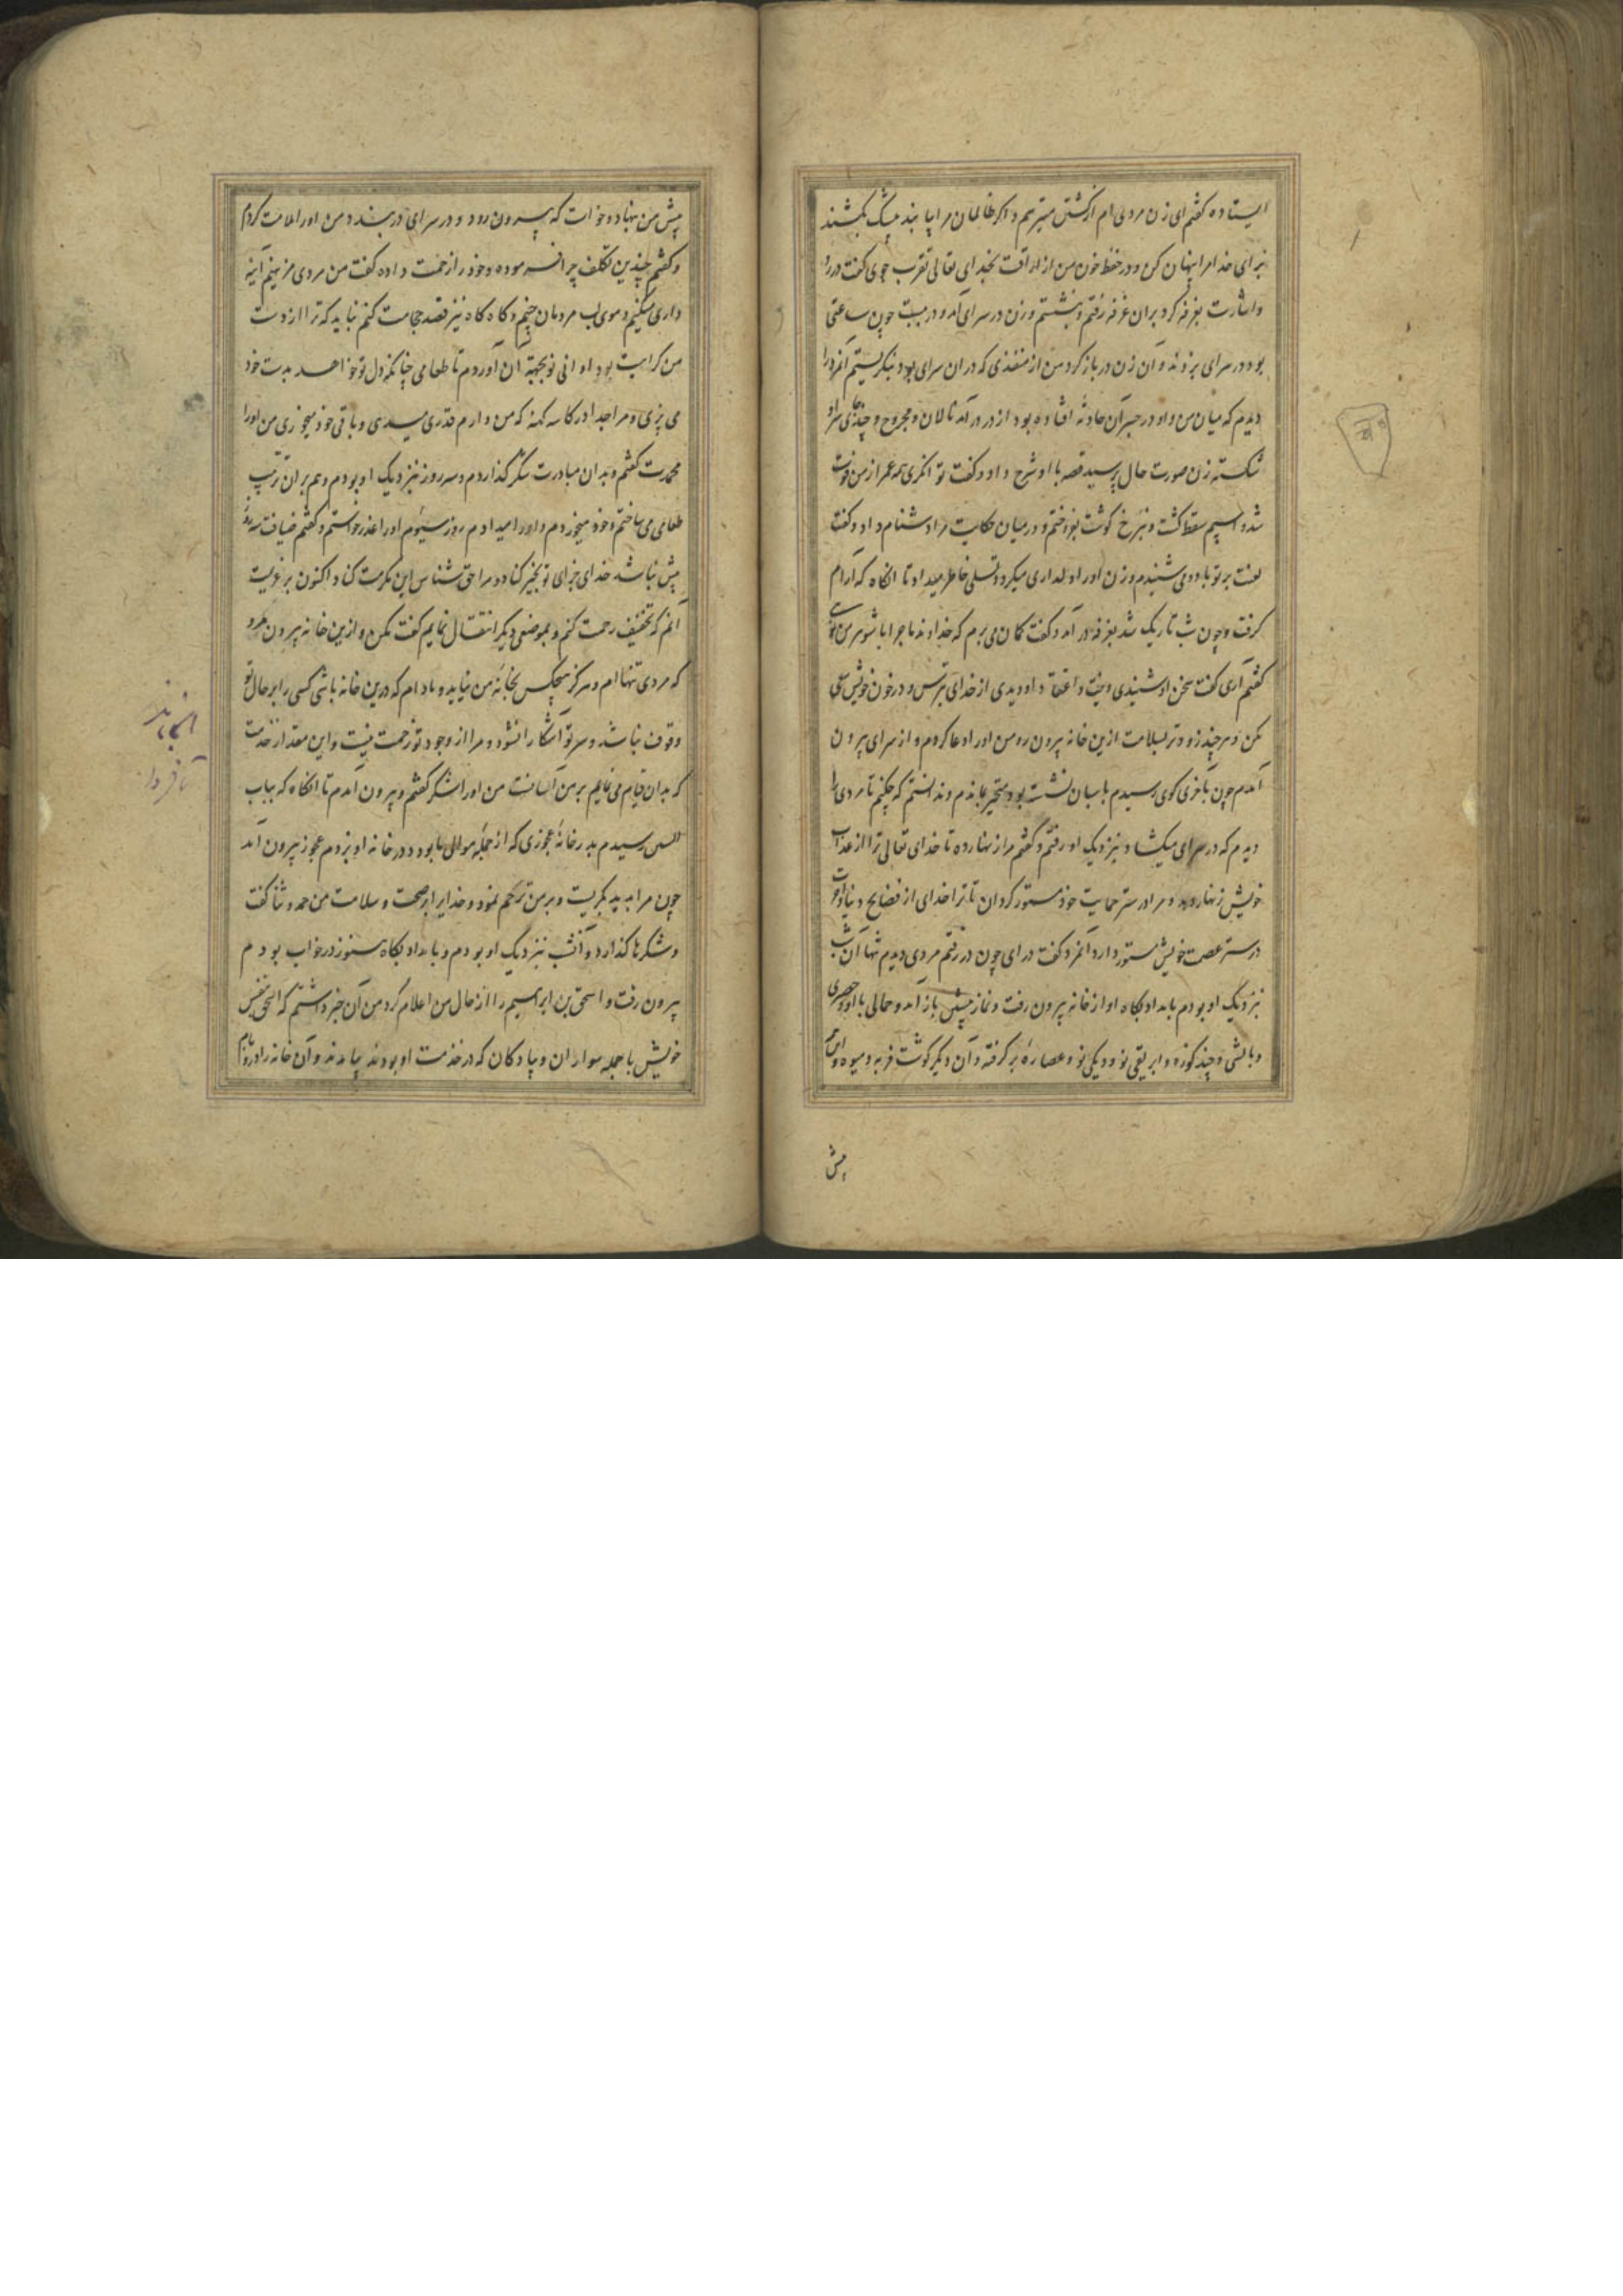 ایستاده کفتم ای زن مردی ام از کشتن میترسم و اکر ظالمان مرا یابند بیشک بکشند
برای خدا مرا پنهان کن و در حفظ خون من از اراقت بخدای تعالی تقرب جوی کفت درآ
و اشارت بغرفه کرد بران غرفه رفتم و بنشستم و زن در سرای آمد و در ببست چون ساعتی
بود در سرای بزدند و آن زن در باز کرد من از منفذی که در ان سرای بود بنکریستم آنمرد را
دیدم که میان من و او در جسر آن حادثه افتاده بود از در درآمد نالان و مجروح و چند جای سر او
شکسته زن صورت حال پرسید قصه با او شرح داد و کفت توانکری همه عمر از من فوت
شد و اسپم سقط کشت و بنرخ کوشت بفروختم و در میان حکایت مرا دشنام داد و کفت
لعنت بر تو باد و می شنیدم و زن او را دلداری میکرد و تسلی خاطر میداد تا انکاه که آرام
کرفت و چون شب تاریک شد بغرفه در آمد و کفت کمان می برم که خداوند ماجرا با شوهر من تویی
کفتم آری کفت سخن او شنیدی و اعتقاد او دیدی از خدای بترس و در خون خویش سعی
مکن و هر چند زودتر بسلامت ازین خانه بیرون رو من او را دعا کردم و از سرای بیرون
آمدم چون بآخری کوی رسیدم پاسبان نشسته بود متحیر بماندم و ندانستم که چکنم تا مردی را
دیدم که در سرای میکشاد بنزدیک او رفتم و کفتم مرا زنهار ده تا خدای تعالی ترا از عذاب
خویش زنهار دهد و مرا در ستر حمایت خود مستور کردان تا ترا خدای از فضایح دنیا و آخرت
در ستر عصمت خویش مستور دارد آنمرد کفت درآی چون در رفتم مردی دیدم تنها آن شب
بنزدیک او بودم بامداد پکاه او از خانه بیرون رفت و نماز پیشین بازآمد و حمالی با او و حصیری
و بالشی و چند کوزه و ابریقی نو و دیکی نو و عصاره بر کرفته و آن دیکر کوشت فربه و میوه
پیش
پیش من بنهاد و خواست که بیرون رود و در سرای در بندد من او را ملامت کردم
و کفتم چندین تکلف چرا فرموده و خود را زحمت داده کفت من مردی مزینم آینه
داری میکنم و موی لب مردمان چینم و کاه کاه نیز فصد و حجامت کنم نباید که ترا از دست
من کراهیت بود اوانی نو بجهة آن آوردم تا طعامی چنانکه دل تو خواهد بدست خود
می پزی و مرا جدا در کاسه کهنه که من دارم قدری میدهی و باقی خود میخوری من او را
محمدت کفتم و بدان مبادرت شکر گذاردم و سه روز بنزدیک او بودم و هم بران ترتیب
طعامی می ساختم و خود میخوردم و او را میدادم روز سیوم او را عذر خواستم و کفتم ضیافت سه روز
بیش نباشد خدای جزای تو بخیر کناد و مرا حق شناس این مکرمت کناد اکنون بر عزیمت
آنم که تخفیف زحمت کنم و بموضعی دیکر انتقال نمایم کفت مکن و ازین خانه بیرون مرو
که مردی تنها ام و هرکز هیچکس بخانه من نیاید و مادام که درین خانه باشی کسی را بر حال تو
وقوف نباشد و سر تو آشکارا نشود و مرا از وجود تو زحمت نیست و این مقدار خدمت
که بدان قیام می نمایم بر من آسانست من او را شکر کفتم و بیرون آمدم تا انکاه که بباب
رسیدم بدر خانه عجوزی که از جمله موالی ما بود در خانه او بزدم عجوز بیرون آمد
چون مرا بدید بکریست و بر من ترحم نمود و خدایرا بر صحت و سلامت من حمد و ثنا کفت
و شکرها گذارد و آنشب بنزدیک او بودم و بامداد پکاه هنوز در خواب بودم
بیرون رفت و اسحق بن ابراهیم را از حال من اعلام کرد من آن خبر داشتم که اسحق بنفس
خویش با جمله سواران و پیادکان که در خدمت او بودند بیامدند و آن خانه را
تا فردا